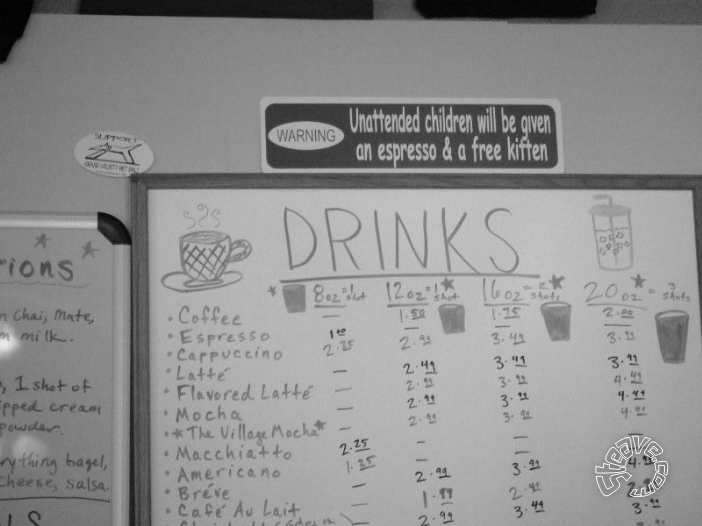 WARNING
Unattended children will be given
an espresso & a free kitten
SUPPORT
DRINKS
8oz = 1 shot
12oz = 1 shot
16oz = 2 shots
20oz = 3 shots
• Coffee — 1.50 1.75 2.00
• Espresso 1.00
• Cappuccino 2.25 2.99 3.49 3.99
• Latté — 2.49 3.49 3.99
• Flavored Latté — 2.99 3.99 4.49
• Mocha — 2.99 3.99 4.49
• ★ The Village Mocha ★ — 2.99 3.99 4.99
• Macchiatto 2.25 — — —
• Americano 1.25
• Bréve — 2.99 3.99 4.99
• Café Au Lait —
ions
n Chai, Mate,
m milk.
, 1 shot of
ipped cream
powder.
rything bagel,
cheese, salsa.
LS
steave.com